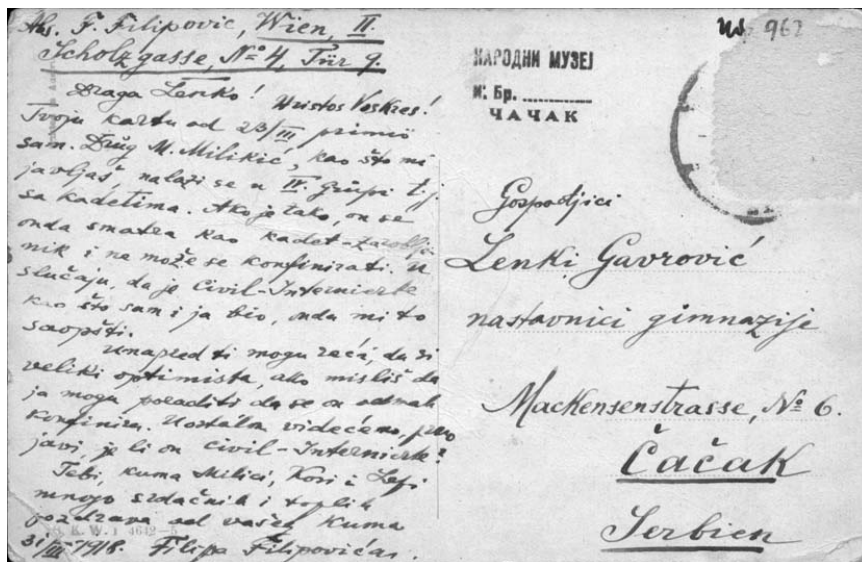 Abs. F. Filipović, Wien, II.
Scholzgasse, No 4, Tür 9.
Draga Lenko! Hristos Voskres!
Tvoju kartu od 23/III primio
sam. Drug M. Milikić, kao što mi
javljaš, nalazi se u IV. grupi t.j.
sa kadetima. Ako je tako, on se
onda smatra kao kadet-zaroblje-
nik i ne može se konfinirati. U
slučaju, da je Civil-Internierte
kao što sam i ja bio, onda mi to
saopšti.
Unapred ti mogu reći, da si
veliki optimista, ako misliš da
ja mogu poraditi da se on odmah
konfinira. Uostalom videćemo, prvo
javi, je li on Civil-Internierte?
Tebi, kuma Milici, Kosi i Lepi
mnogo srdačnih i toplih
pozdrava od vašeg kuma
31/III 1918. Filipa Filipovića.
K. W. I 4642
962
НАРОДНИ МУЗЕЈ
И. Бр.
ЧАЧАК
Gospodjici
Lenki Gavrović
nastavnici gimnazije
Mackensenstrasse, No 6.
Čačak
Serbien